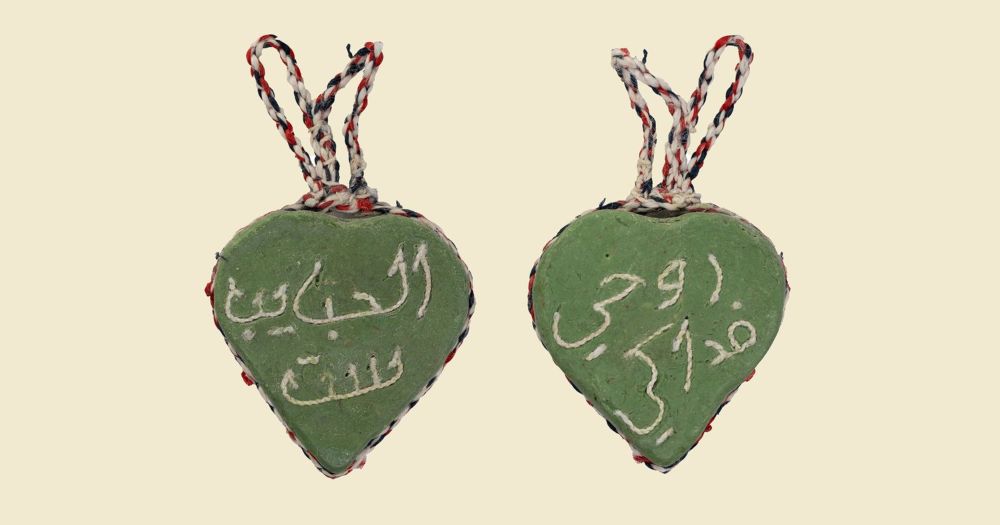 الحبايب
ست
روحي
فداكي